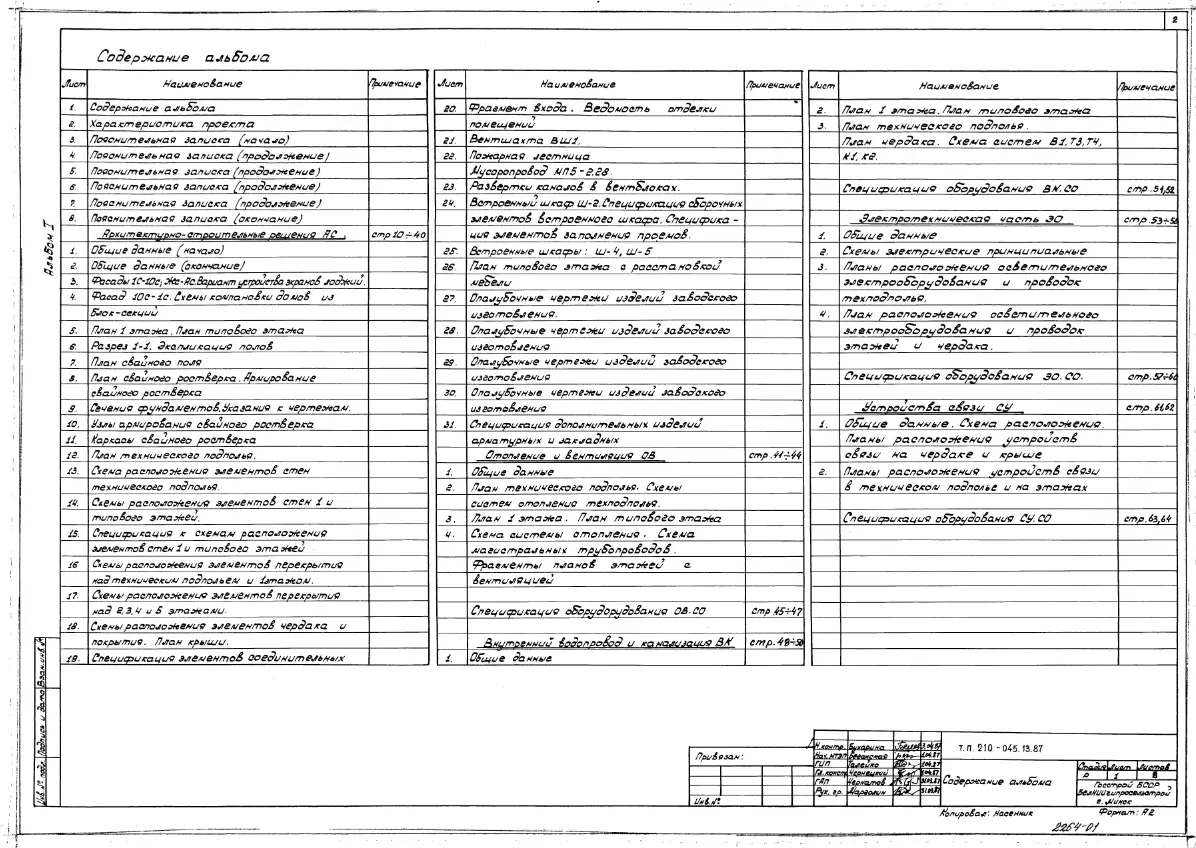 2
Содержание альбома
Альбом I
Лист Наименование Примечание
1. Содержание альбома
2. Характеристика проекта
3. Пояснительная записка (начало)
4. Пояснительная записка (продолжение)
5. Пояснительная записка (продолжение)
6. Пояснительная записка (продолжение)
7. Пояснительная записка (продолжение)
8. Пояснительная записка (окончание)
Архитектурно-строительные решения АС. стр 10÷40
1. Общие данные (начало)
2. Общие данные (окончание)
3. Фасады 1С-10с; Жс-Ас. Вариант устройства экранов лоджий.
4. Фасад 10с-1с. Схемы компановки домов из
Блок-секций
5. План 1 этажа. План типового этажа
6. Разрез 1-1. Экспликация полов
7. План свайного поля
8. План свайного ростверка. Армирование
свайного ростверка
9. Сечения фундаментов. Указания к чертежам.
10. Узлы армирования свайного ростверка
11. Каркасы свайного ростверка
12. План технического подполья.
13. Схема расположения элементов стен
технического подполья.
14. Схемы расположения элементов стен 1 и
типового этажей.
15. Спецификация к схемам расположения
элементов стен 1 и типового этажей
16 Схемы расположения элементов перекрытия
над техническим подпольем и 1этажом.
17. Схемы расположения элементов перекрытия
над 2,3,4 и 5 этажами.
18. Схемы расположения элементов чердака и
покрытия. План крыши.
19. Спецификация элементов соединительных
Лист Наименование Примечание
20. Фрагмент входа. Ведомость отделки
помещений
21. Вентшахта ВШ1.
22. Пожарная лестница
Мусоропровод МП5-2.28.
23. Развертки каналов в вентблоках.
24. Встроенный шкаф Ш-2. Спецификация сборочных
элементов встроенного шкафа. Специфика-
ция элементов заполнения проемов.
25. Встроенные шкафы: Ш-4, Ш-5
26. План типового этажа с расстановкой
мебели
27. Опалубочные чертежи изделий заводского
изготовления.
28. Опалубочные чертежи изделий заводского
изготовления
29. Опалубочные чертежи изделий заводского
изготовления
30. Опалубочные чертежи изделий заводского
изготовления
31. Спецификация дополнительных изделий
арматурных и закладных
Отопление и вентиляция ОВ стр. 41÷44
1. Общие данные
2. План технического подполья. Схемы
систем отопления техподполья.
3. План 1 этажа. План типового этажа
4. Схема системы отопления. Схема
магистральных трубопроводов.
Фрагменты планов этажей с
вентиляцией
Спецификация оборудорудования ОВ.СО стр. 45÷47
Внутренний водопровод и канализация ВК стр. 48÷50
1. Общие данные
Лист Наименование Примечание
2. План 1 этажа. План типового этажа
3. План технического подполья.
План чердака. Схема систем В1, Т3, Т4,
К1, К2.
Спецификация оборудования ВК.СО стр. 51,52
Электротехническая часть ЭО стр. 53÷56
1. Общие данные
2. Схемы электрические принципиальные
3. Планы расположения осветительного
электрооборудования и проводок
техподполья.
4. План расположения осветительного
электрооборудования и проводок
этажей и чердака.
Спецификация оборудования ЭО.СО. стр. 57÷60
Устройства связи СУ стр. 61,62
1. Общие данные. Схема расположения.
Планы расположения устройств
связи на чердаке и крыше
2. Планы расположения устройств связи
в техническом подполье и на этажах
Спецификация оборудования СУ.СО стр. 63,64
Взам.инв.№
Подпись и дата
Инв.№ подл.
Привязан:
Инв.№
Н.контр. Бухарина
Нач. НТЭП
ГИП Галейко
Гл. констр. Чернецкий
ГАП Черматов
Рук. гр. Марголин
т.п. 210-045.13.87
Содержание альбома
Стадия Лист Листов
Р 1 8
Госстрой БССР
Белниигипросельстрой
г. Минск
Копировал: Насенник
Формат: А2
2254-01